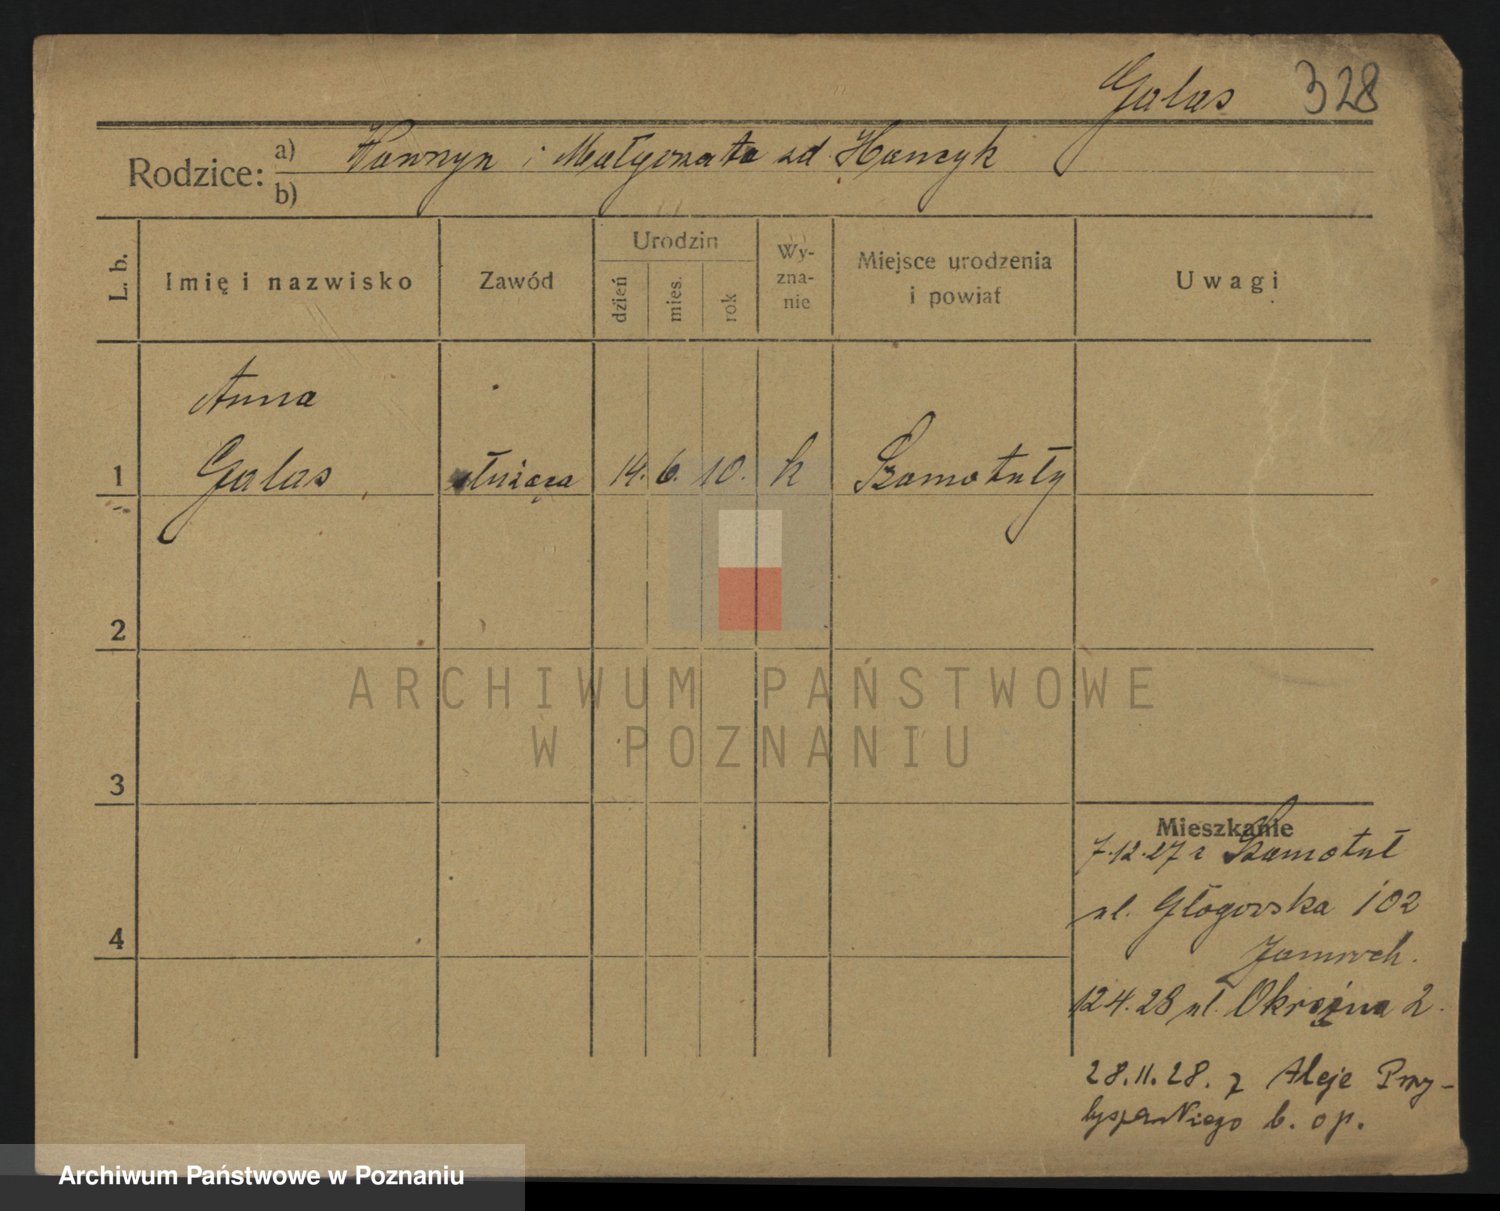 Galas 328
Rodzice: a) Wawrzyn i Małgorzata zd. Hanczyk
b)
L. b.
Imię i nazwisko
Zawód
Urodzin
dzień
mies.
rok
Wy-
zna-
nie
Miejsce urodzenia
i powiat
Uwagi
Anna
1 Galas służąca 14. 6. 10. k Szamotuły
2
3
4
ARCHIWUM PAŃSTWOWE
W POZNANIU
Mieszkanie
7.12.27 z Szamotuł
ul. Głogowska 102
12 4. 28 ul. Okrężna 2.
28.11.28. z Aleje Przy-
byszewskiego b. op.
Archiwum Państwowe w Poznaniu